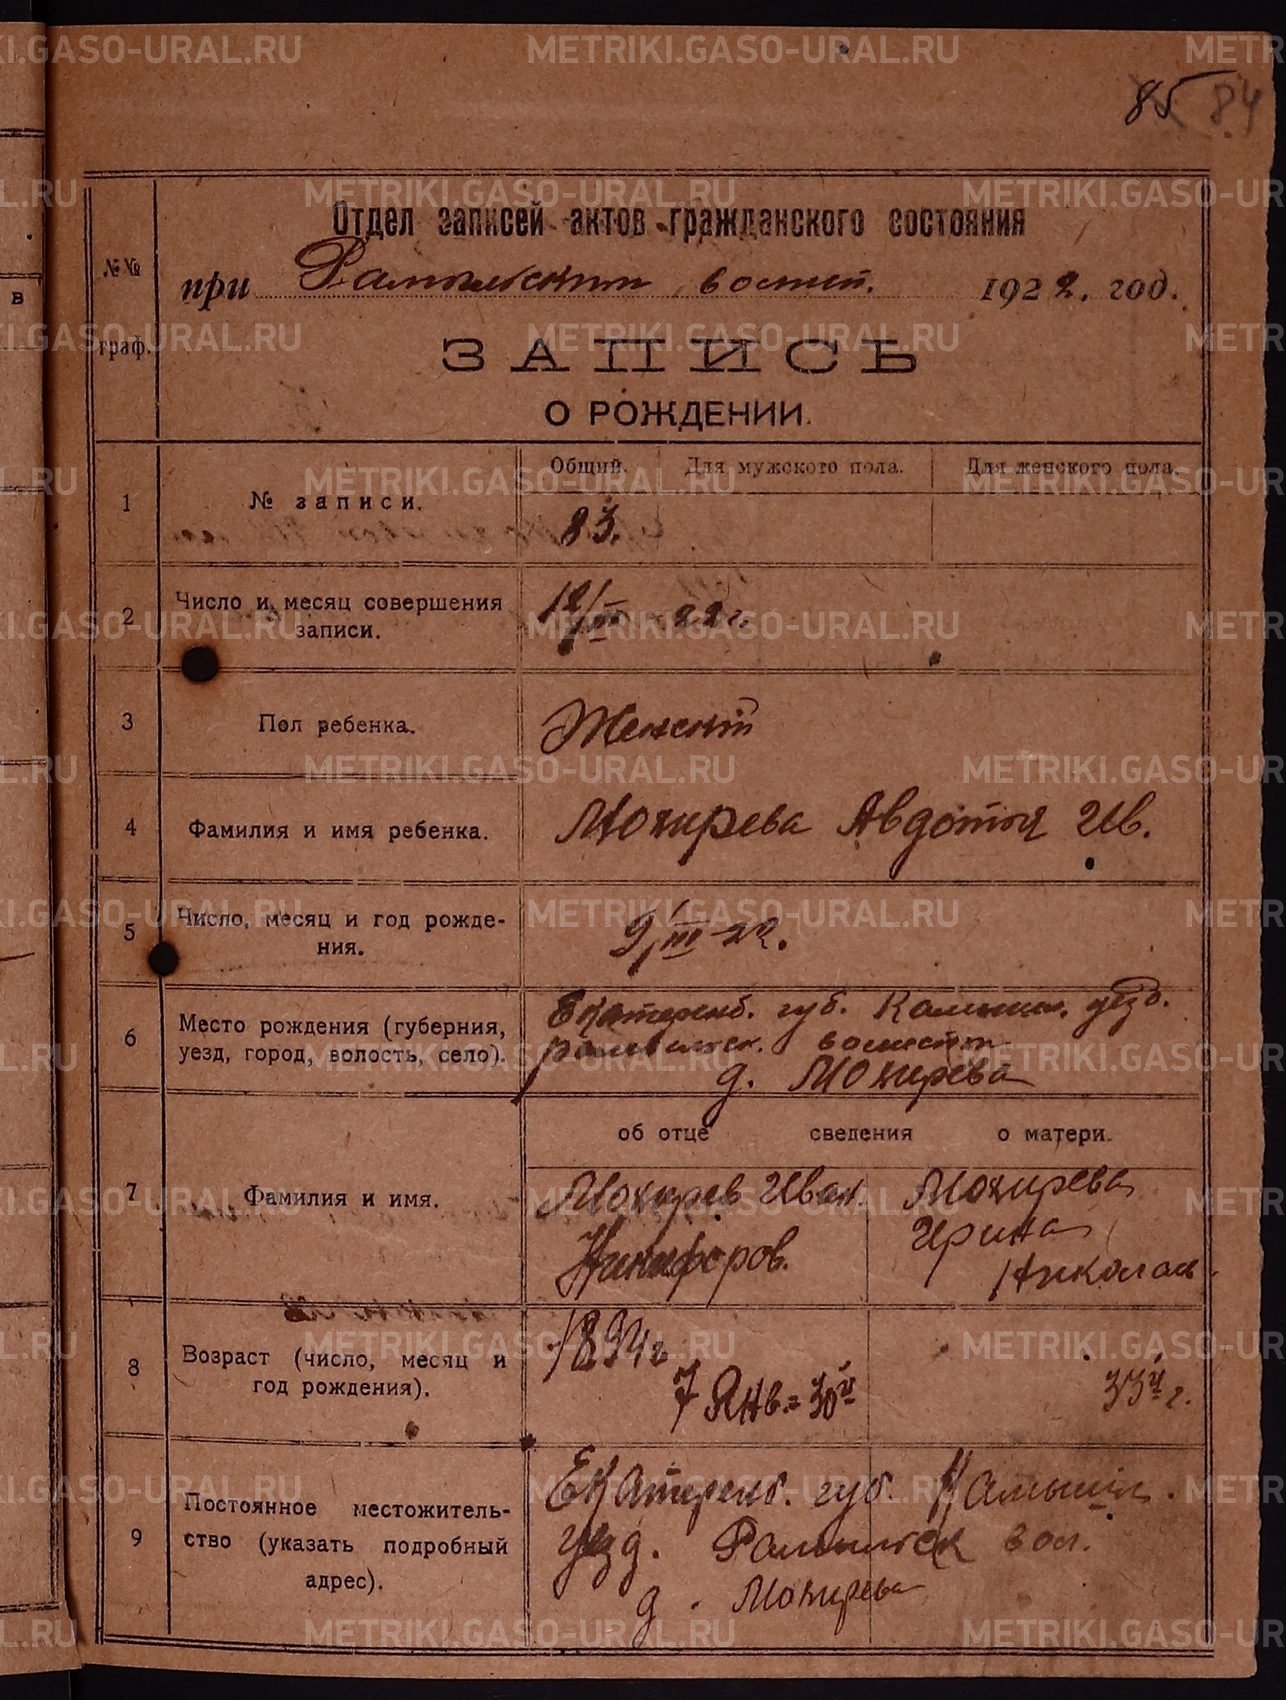 METRIKI.GASO-URAL.RU
85 84
Отдел записей актов гражданского состояния
№№ граф.
при волост. 1922. год.
ЗАПИСЬ
О РОЖДЕНИИ.
Общий. Для мужского пола. Для женского пола.
1 № записи. 83.
2 Число и месяц совершения записи. 12/III 22 г.
3 Пол ребенка. Женский
4 Фамилия и имя ребенка. Мокирева Авдотья Ив.
5 Число, месяц и год рожде-
ния. 9/III-22.
6 Место рождения (губерния, Екатеринб. губ. Камышл. уезд.
уезд, город, волость, село).
д. Мокирева
об отце сведения о матери.
7 Фамилия и имя. Мокирев Иван Мокирева
Никифоров. Ирина
Николаев
8 Возраст (число, месяц и 1894 г
год рождения). 7 Янв. = 30й 33й г.
9 Постоянное местожитель- Екатеринб. губ. Камышл.
ство (указать подробный уезд. вол.
адрес). д. Мокирева